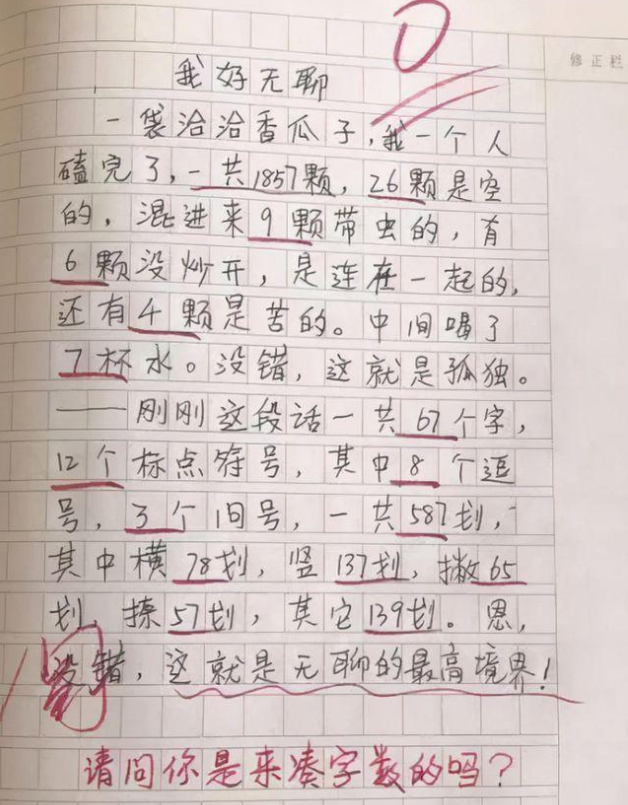 0
修正栏
我好无聊
一袋洽洽香瓜子,我一个人
磕完了,一共1857颗,26颗是空
的,混进来9颗带虫的,有
6颗没炒开,是连在一起的,
还有4颗是苦的。中间喝了
7杯水。没错,这就是孤独。
——刚刚这段话一共67个字,
12个标点符号,其中8个逗
号,3个问号,一共587划,
其中横78划,竖137划,撇65
划,捺57划,其它139划。恩,
没错,这就是无聊的最高境界!
请问你是来凑字数的吗?